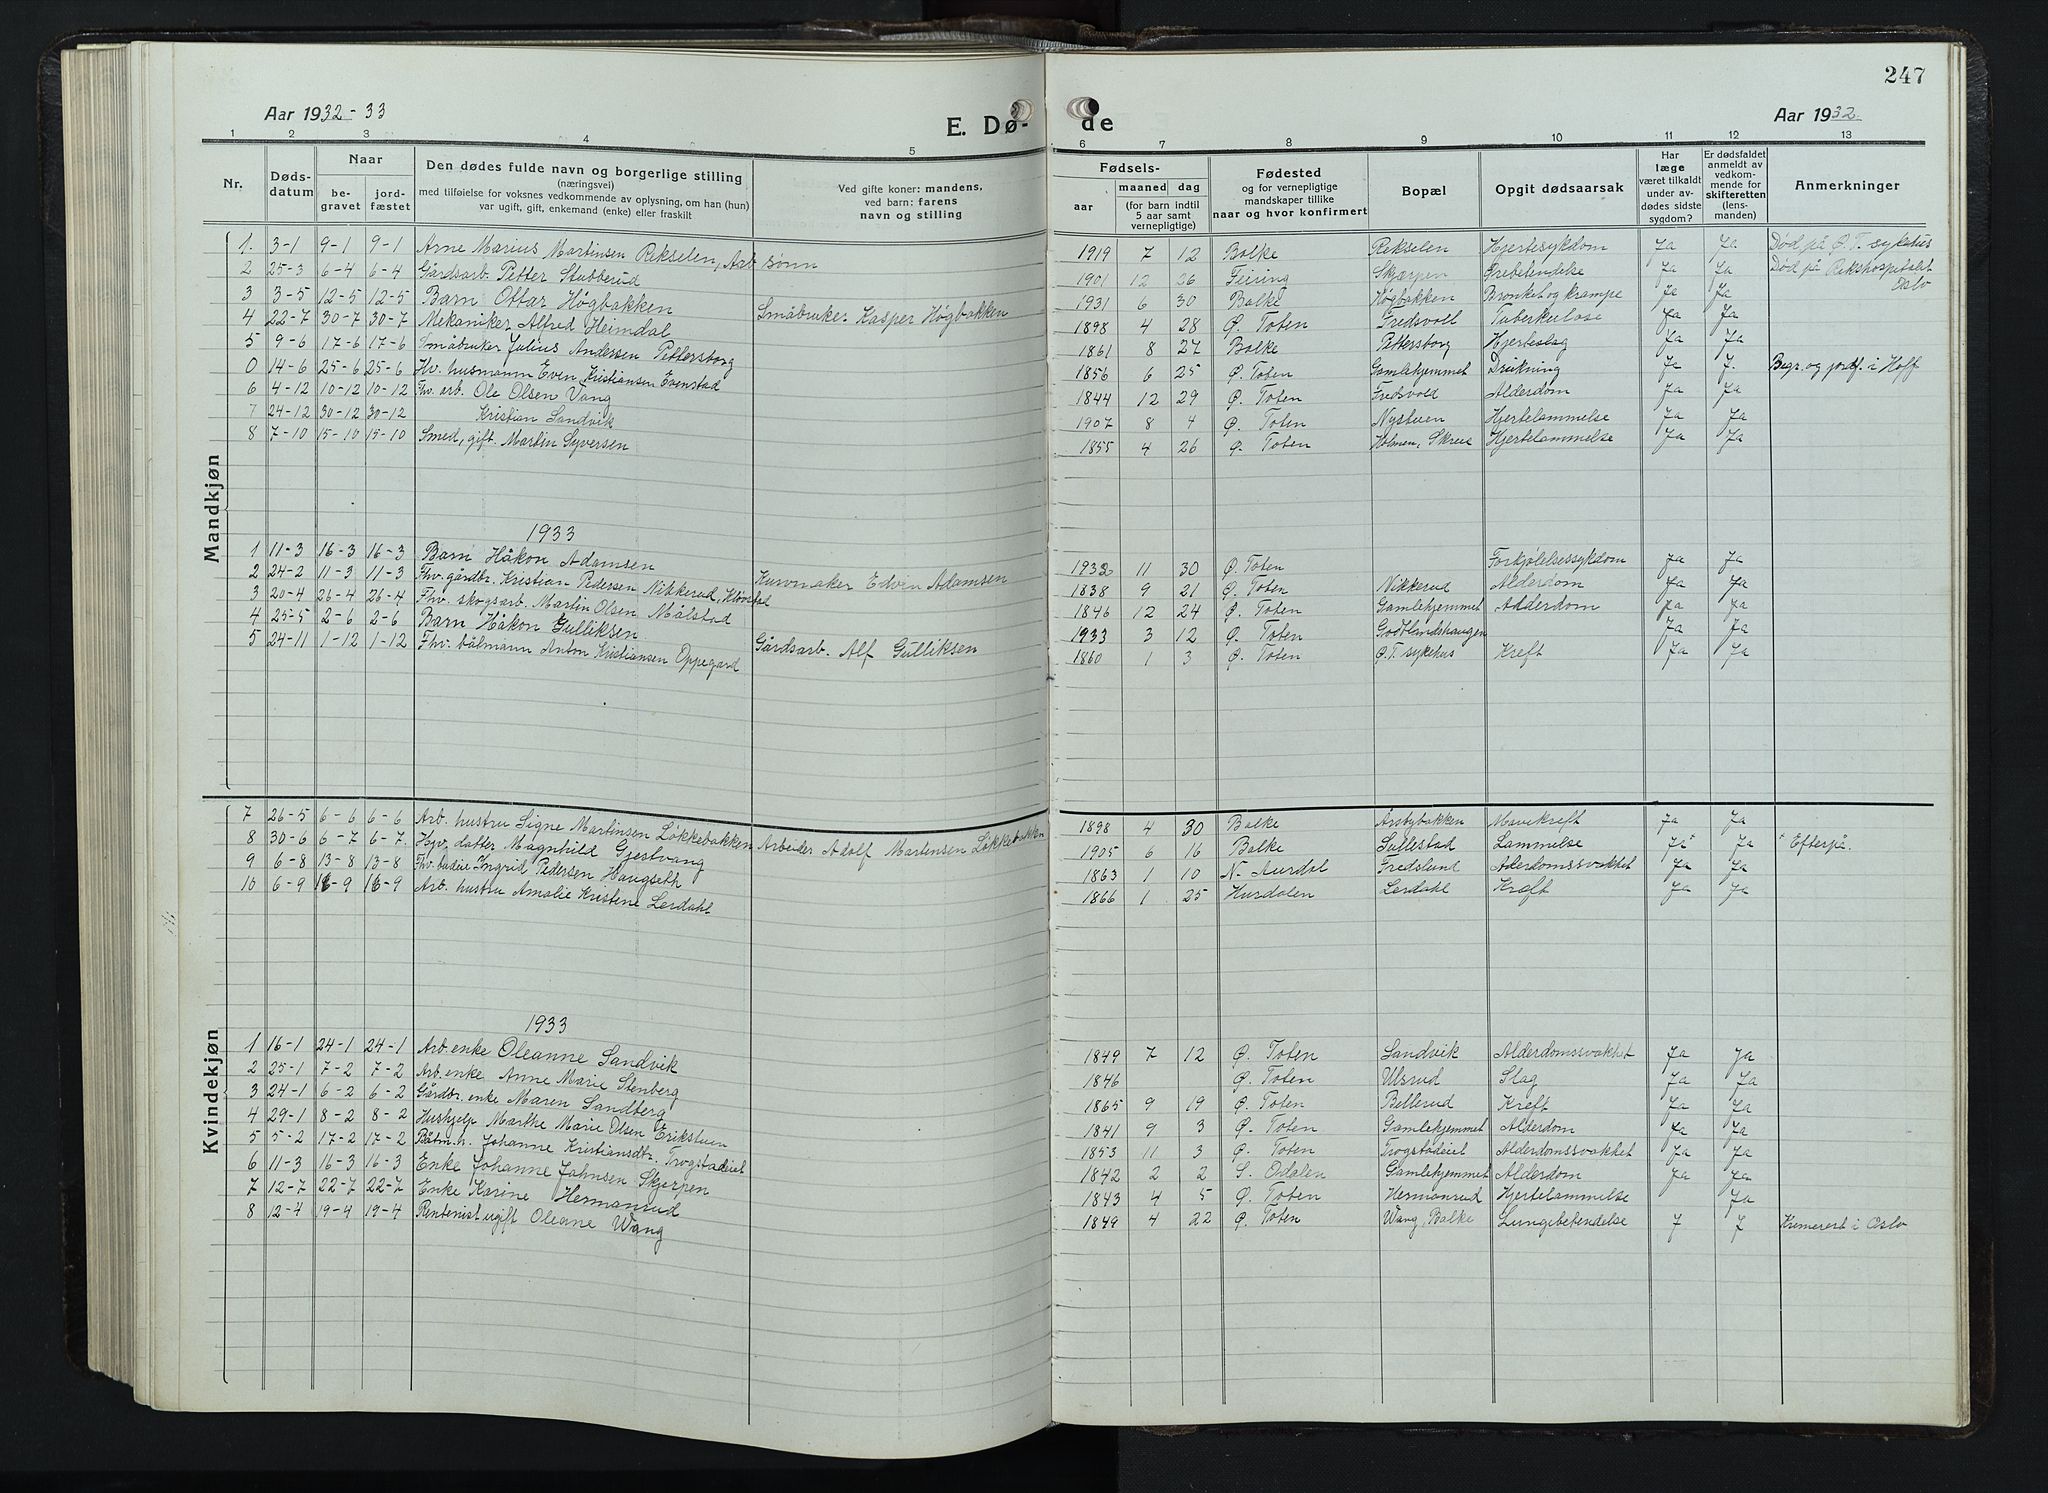 247
Aar 1932-33
E. Dø-
de
Aar 1932
1 2 3 4 5 6 7 8 9 10 11 12 13
Nr.
Døds-
datum
Naar
be-
gravet
jord-
fæstet
Den dødes fulde navn og borgerlige stilling
(næringsvei)
med tilføielse for voksnes vedkommende av oplysning, om han (hun)
var ugift, gift, enkemand (enke) eller fraskilt
Ved gifte koner: mandens,
ved barn: farens
navn og stilling
Fødsels-
aar
maaned
dag
(for barn indtil
5 aar samt
vernepligtige)
Fødested
og for vernepligtige
mandskaper tillike
naar og hvor konfirmert
Bopæl
Opgit dødsaarsak
Har
læge
været tilkaldt
under av-
dødes sidste
sygdom?
Er dødsfaldet
anmeldt av
vedkom-
mende for
skifteretten
(lens-
manden)
Anmerkninger
Mandkjøn
1. 3-1 9-1 9-1 Arne Marius Martinsen Rekselen, Arb. sønn 1919 7 12 Balke Rekselen Hjertesykdom Ja Ja Død på Ø. T. sykehus
2 25-3 6-4 6-4 Gårdsarb. Petter Stubberud 1901 12 26 Feiring Skjerpen Ja Ja Død på Rikshospitalet Oslo
3 3-5 12-5 12-5 Barn Ottar Høgbakken Småbruker Kasper Høgbakken 1931 6 30 Balke Høgbakken Bronkit og krampe Ja Ja
4 22-7 30-7 30-7 Mekaniker Alfred Heimdal 1898 4 28 Ø. Toten Fredsvoll Tuberkulose Ja Ja
5 9-6 17-6 17-6 Småbruker Julius Andersen Pettersborg 1861 8 27 Balke Pettersborg Hjerteslag Ja Ja
0 14-6 25-6 25-6 Hv. husmann Even Kristiansen Evenstad 1856 6 25 Ø. Toten Gamlehjemmet Drukning Ja J. Begr. og jordf. i Hoff
6 4-12 10-12 10-12 Fhv. arb. Ole Olsen Vang 1844 12 29 Ø. Toten Fredsvold Alderdom Ja Ja
7 24-12 30-12 30-12 Kristian Sandvik 1907 8 4 Ø. Toten Nystuen Hjertelammelse Ja Ja
8 7-10 15-10 15-10 Smed, gift. Martin Syversen 1855 4 26 Ø. Toten Holmen, Skreia Hjertelammelse Ja Ja
1933
1 11-3 16-3 16-3 Barn Håkon Adamsen Kurvmaker Edvin Adamsen 1932 11 30 Ø. Toten Forkjølelsessykdom Ja Ja
2 24-2 11-3 11-3 Fhv. gårdbr. Kristian Pedersen Nikkerud, Kløvstad 1838 9 21 Ø. Toten Nikkerud Alderdom Ja Ja
3 20-4 26-4 26-4 Fhv. skogsarb. Martin Olsen Målstad 1846 12 24 Ø. Toten Gamlehjemmet Alderdom Ja Ja
4 25-5 2-6 2-6 Barn Håkon Gulliksen Gårdsarb. Alf Gulliksen 1933 3 12 Ø. Toten Godtlandshaugen Ja Ja
5 24-11 1-12 1-12 Fhv. båtmann Anton Kristiansen Oppegård 1860 1 3 Ø. Toten Ø. T. sykehus Kreft Ja Ja
Kvindekjøn
7 26-5 6-6 6-6 Arb. hustru Signe Martinsen Løkkebakken Arbeider Adolf Martinsen Løkkebakken 1898 4 30 Balke Årsbybakken Mavekreft Ja Ja
8 30-6 6-7 6-7. Hjv. datter Magnhild Gjestvang 1905 6 16 Balke Sullestad Lammelse Ja+ Ja + Efterpå.
9 6-8 13-8 13-8 Fhv. budeie Ingrid Pedersen Haugseth 1863 1 10 N. Aurdal Fredslund Alderdomssvakhet Ja Ja
10 6-9 16-9 16-9 Arb. hustru Amalie Kristene Lerdahl 1866 1 25 Hurdalen Lerdahl Kræft Ja Ja
1933
1 16-1 24-1 24-1 Arb. enke Oleanne Sandvik 1849 7 12 Ø. Toten Sandvik Alderdomssvakhet Ja Ja
2 25-1 7-2 7-2 Arb. enke Anne Marie Stenberg 1846 Ø. Toten Ulsrud Slag Ja Ja
3 24-1 6-2 6-2 Gårdbr. enke Maren Sandberg 1865 9 19 Ø. Toten Billerud Kreft Ja Ja
4 29-1 8-2 8-2 Hushjelp Marthe Marie Olsen Erikstuen 1841 9 3 Ø. Toten Gamlehjemmet Alderdom Ja Ja
5 5-2 17-2 17-2 Båtm. h. Johanne Kristiansdtr. Trogstadeiet 1853 11 3 Ø. Toten Trogstadeiet Alderdomssvakhet Ja Ja
6 11-3 16-3 16-3 Enke Johanne Johnsen Skjerpen 1842 2 2 S. Odalen Gamlehjemmet Alderdom Ja Ja
7 12-7 22-7 22-7 Enke Karine Hermansrud 1843 4 5 Ø. Toten Hermansrud Hjertelammelse Ja
8 12-4 19-4 19-4 Rentenist ugift Oleane Wang 1849 4 22 Ø. Toten Wang, Balke Lungebetendelse J J Kremeret i Oslo